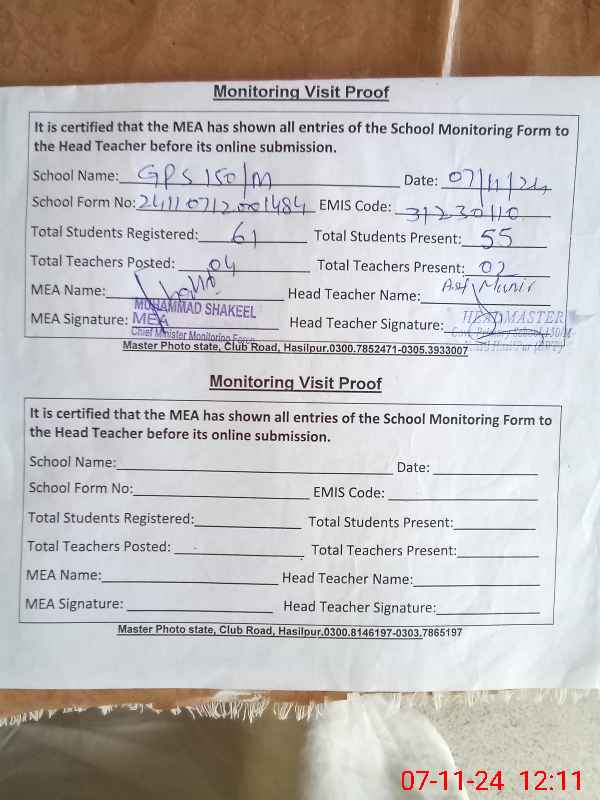 Monitoring Visit Proof
It is certified that the MEA has shown all entries of the School Monitoring Form to
the Head Teacher before its online submission.
School Name: GPS 150/M Date: 07/11/24
School Form No: 24110712001484 EMIS Code: 31230110
Total Students Registered: 61 Total Students Present: 55
Total Teachers Posted: 04 Total Teachers Present: 02
MEA Name: Head Teacher Name: Munir
MUHAMMAD SHAKEEL
MEA Signature: MEA Head Teacher Signature: HEADMASTER
Chief Minister Monitoring Force
Master Photo state, Club Road, Hasilpur.0300.7852471-0305.3933007
Monitoring Visit Proof
It is certified that the MEA has shown all entries of the School Monitoring Form to
the Head Teacher before its online submission.
School Name: Date:
School Form No: EMIS Code:
Total Students Registered: Total Students Present:
Total Teachers Posted: Total Teachers Present:
MEA Name: Head Teacher Name:
MEA Signature: Head Teacher Signature:
Master Photo state, Club Road, Hasilpur.0300.8146197-0303.7865197
07-11-24 12:11